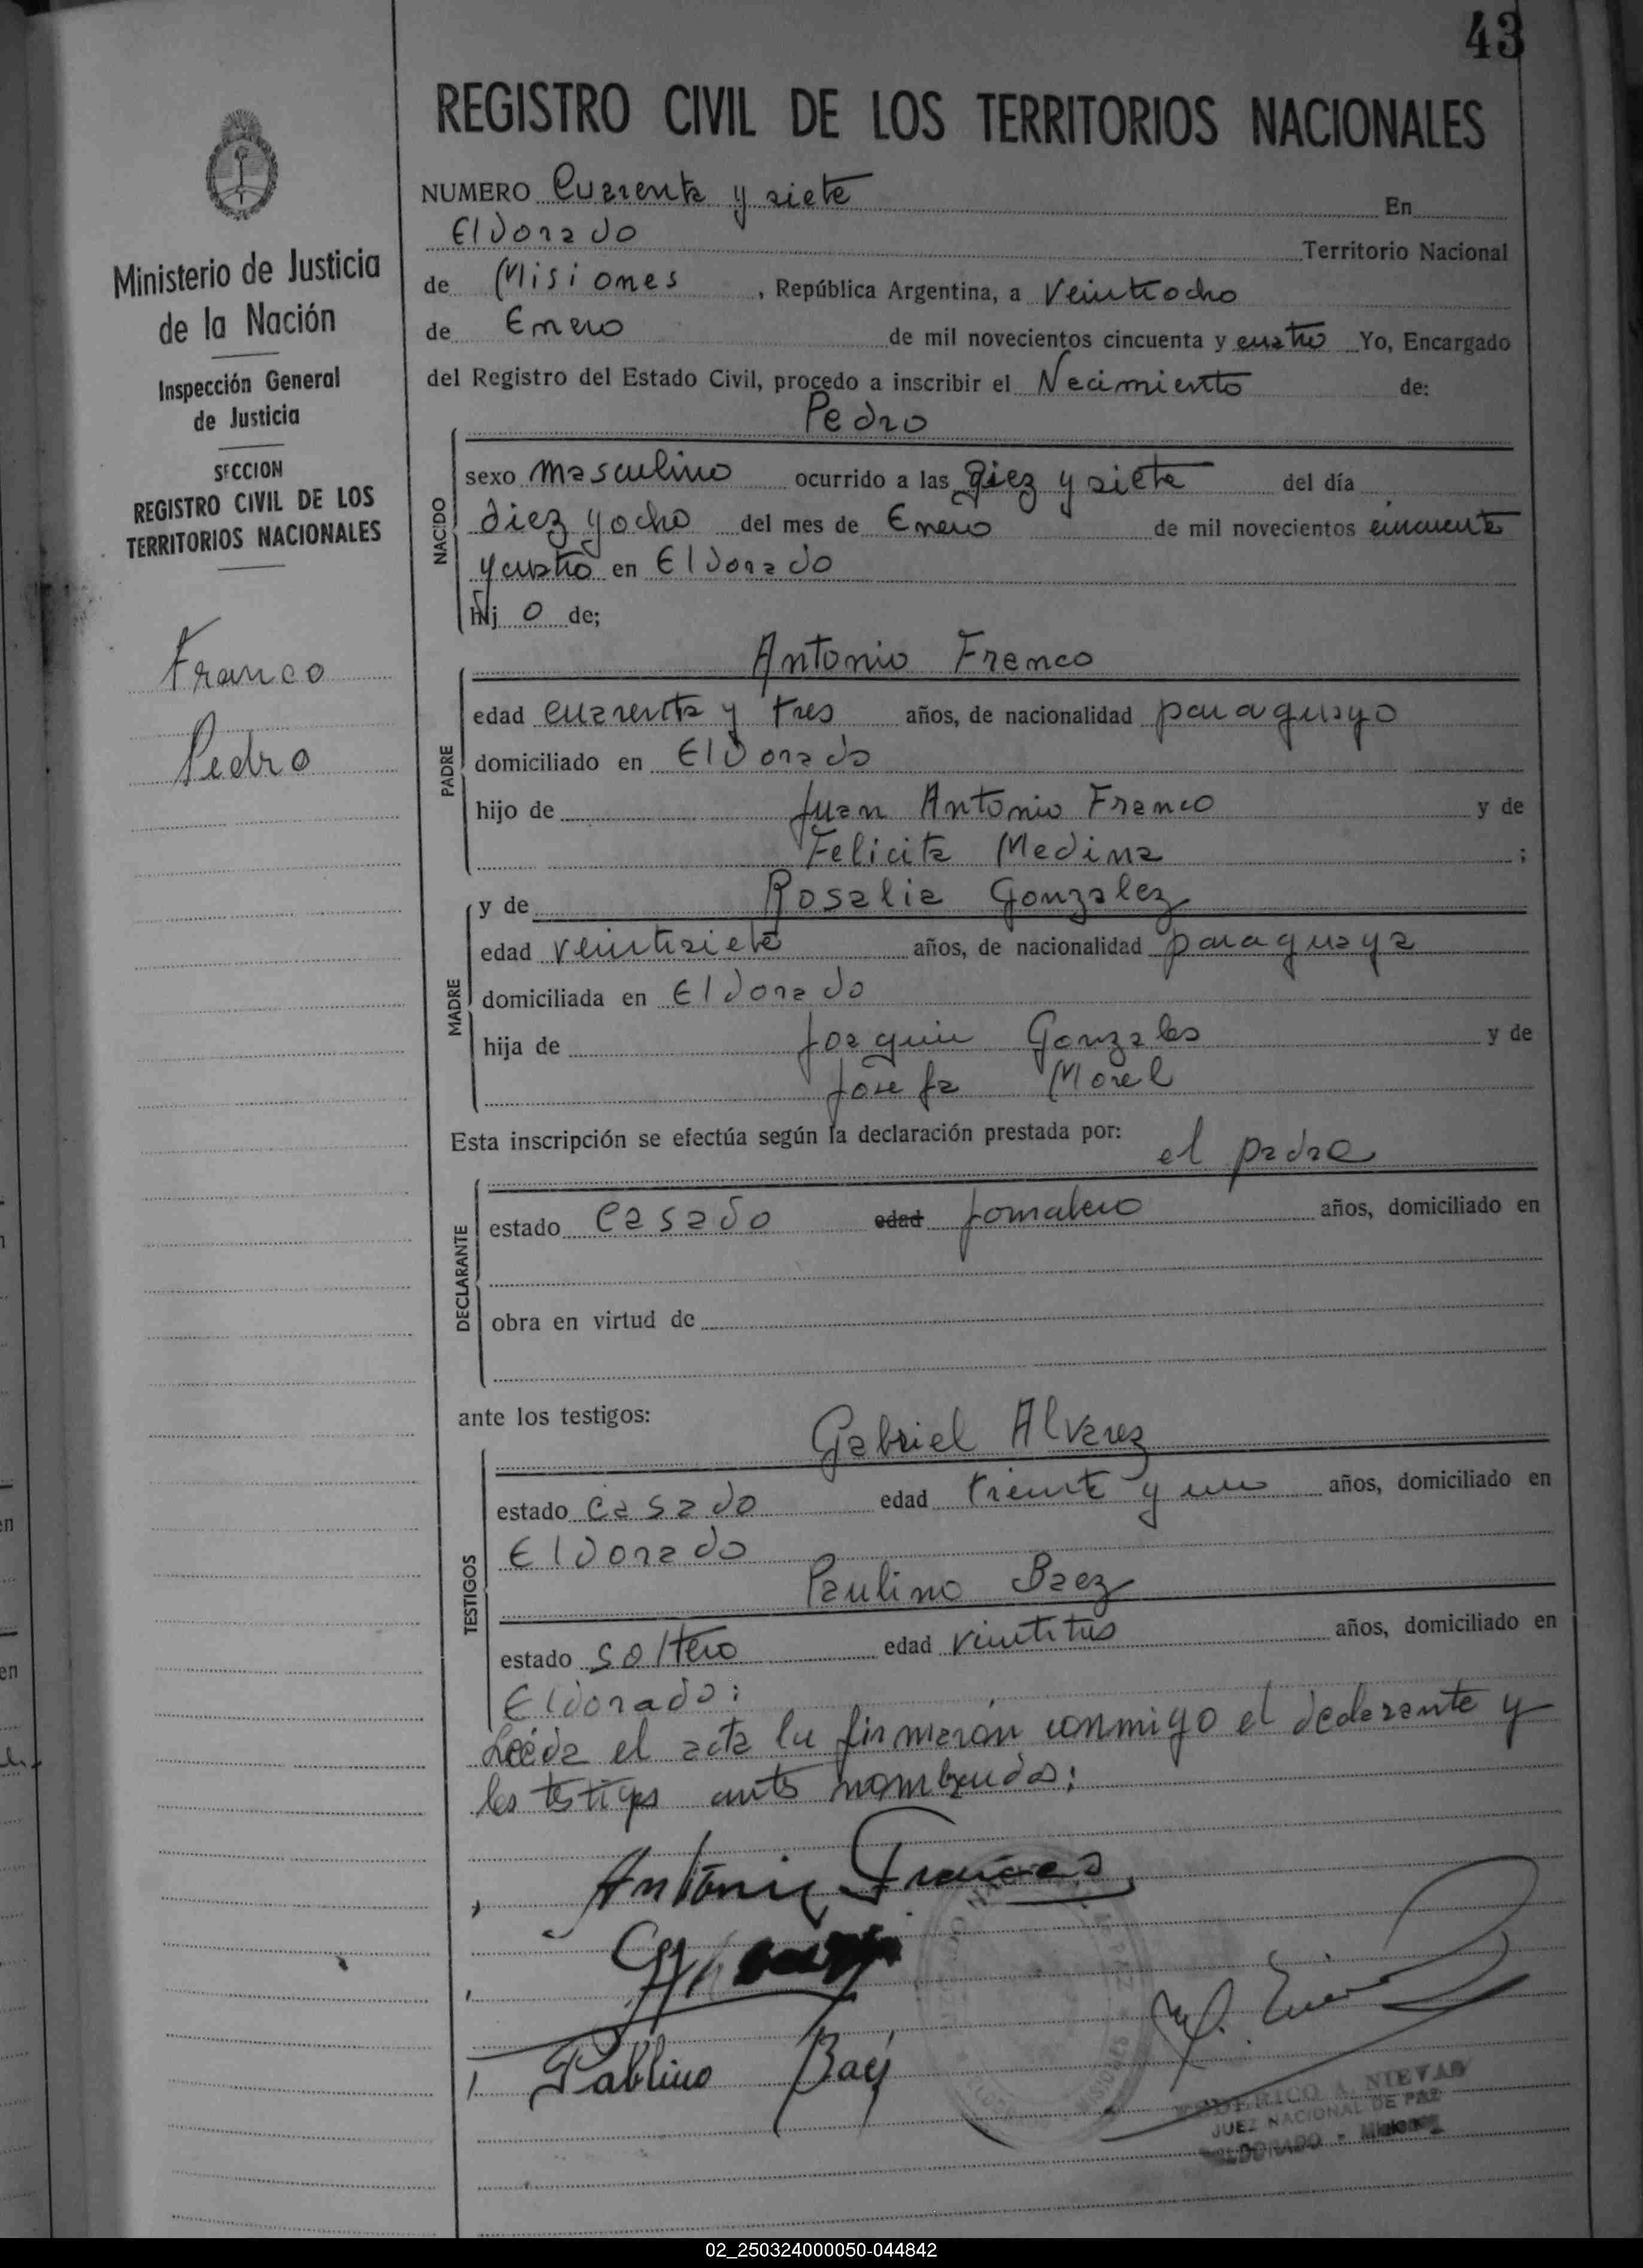 43
REGISTRO CIVIL DE LOS TERRITORIOS NACIONALES
Ministerio de Justicia
de la Nación
Inspección General
de Justicia
SECCION
REGISTRO CIVIL DE LOS
TERRITORIOS NACIONALES
Franco
Pedro
NUMERO Cuarenta y siete En
Eldorado Territorio Nacional
de Misiones, República Argentina, a veintiocho
de Enero de mil novecientos cincuenta y cuatro Yo, Encargado
del Registro del Estado Civil, procedo a inscribir el Nacimiento de:
Pedro
NACIDO
sexo masculino ocurrido a las diez y siete del día
diez y ocho del mes de Enero de mil novecientos cincuenta
y cuatro en Eldorado
hij o de;
Antonio Franco
PADRE
edad cuarenta y tres años, de nacionalidad paraguayo
domiciliado en Eldorado
hijo de Juan Antonio Franco y de
Felicita Medina ;
y de Rosalia Gonzalez
MADRE
edad veintisiete años, de nacionalidad paraguaya
domiciliada en Eldorado
hija de Joaquin Gonzales y de
Josefa Morel
Esta inscripción se efectúa según la declaración prestada por:
el padre
DECLARANTE
estado casado edad jornalero años, domiciliado en
obra en virtud de
ante los testigos:
Gabriel Alvarez
TESTIGOS
estado casado edad treinta y uno años, domiciliado en
Eldorado
Paulino Baez
estado soltero edad veintitres años, domiciliado en
Eldorado:
Leéda el acta la firmarón conmigo el declarante y
los testigos antes nombrados:
Antonio Franco
Pablino Baez
FEDERICO A. NIEVAS
JUEZ NACIONAL DE PAZ
ELDORADO - Misiones
02_250324000050-044842